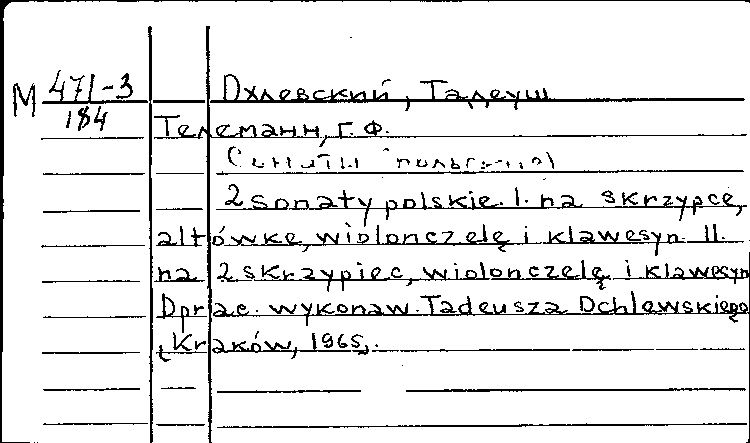 М 471-3
184
Охлевский, Тадеуш
Телеманн, Г. Ф.
2 sonaty polskie. I. na skrzypce,
altówkę, wiolonczelę i klawesyn II.
na 2 skrzypiec, wiolonczelę i klawesyn
Oprac. wykonaw. Tadeusza Ochlewskiego
Kraków, 1965,.